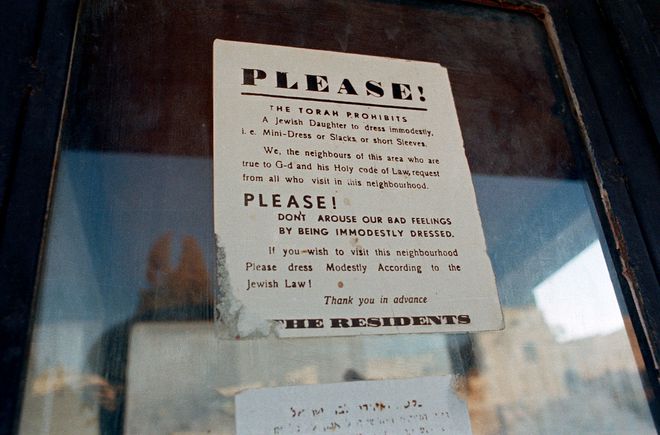 PLEASE!
THE TORAH PROHIBITS
A Jewish Daughter to dress immodestly,
i. e. Mini-Dress or Slacks, or short Sleeves.
We, the neighbours of this area who are
true to G-d and his Holy code of Law, request
from all who visit in this neighbourhood.
PLEASE!
DON'T AROUSE OUR BAD FEELINGS
BY BEING IMMODESTLY DRESSED.
If you wish to visit this neighbourhood
Please dress Modestly According to the
Jewish Law!
Thank you in advance
THE RESIDENTS